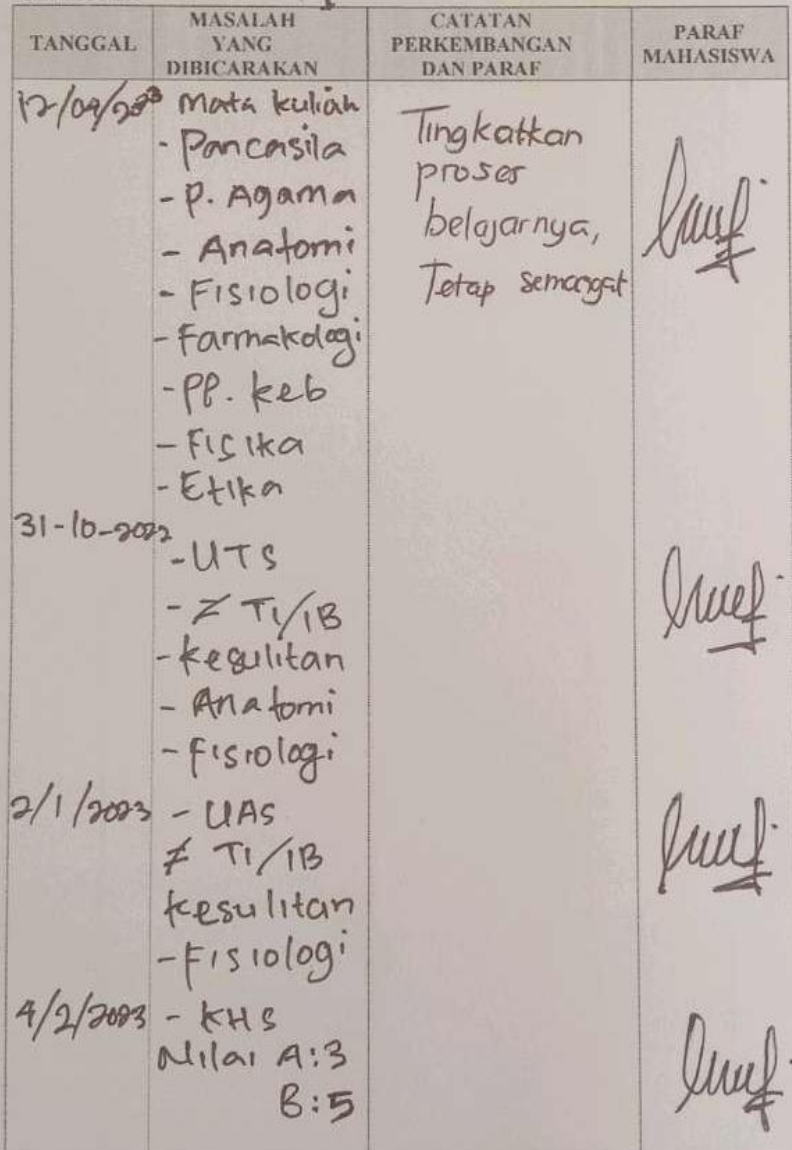 TANGGAL
MASALAH
YANG
DIBICARAKAN
CATATAN
PERKEMBANGAN
DAN PARAF
PARAF
MAHASISWA
Mata kuliah
- Pancasila
- P. Agama
- Anatomi
- Fisiologi
- Farmakologi
- PP. keb
- Fisika
- Etika
Tingkatkan
proses
belajarnya,
Tetap semangat
31-10-2022
- UTS
- ≠ T1/1B
- kesulitan
- Anatomi
- Fisiologi
2/1/2023
- UAS
≠ T1/1B
kesulitan
- Fisiologi
4/2/2023
- KHS
Nilai A:3
B:5